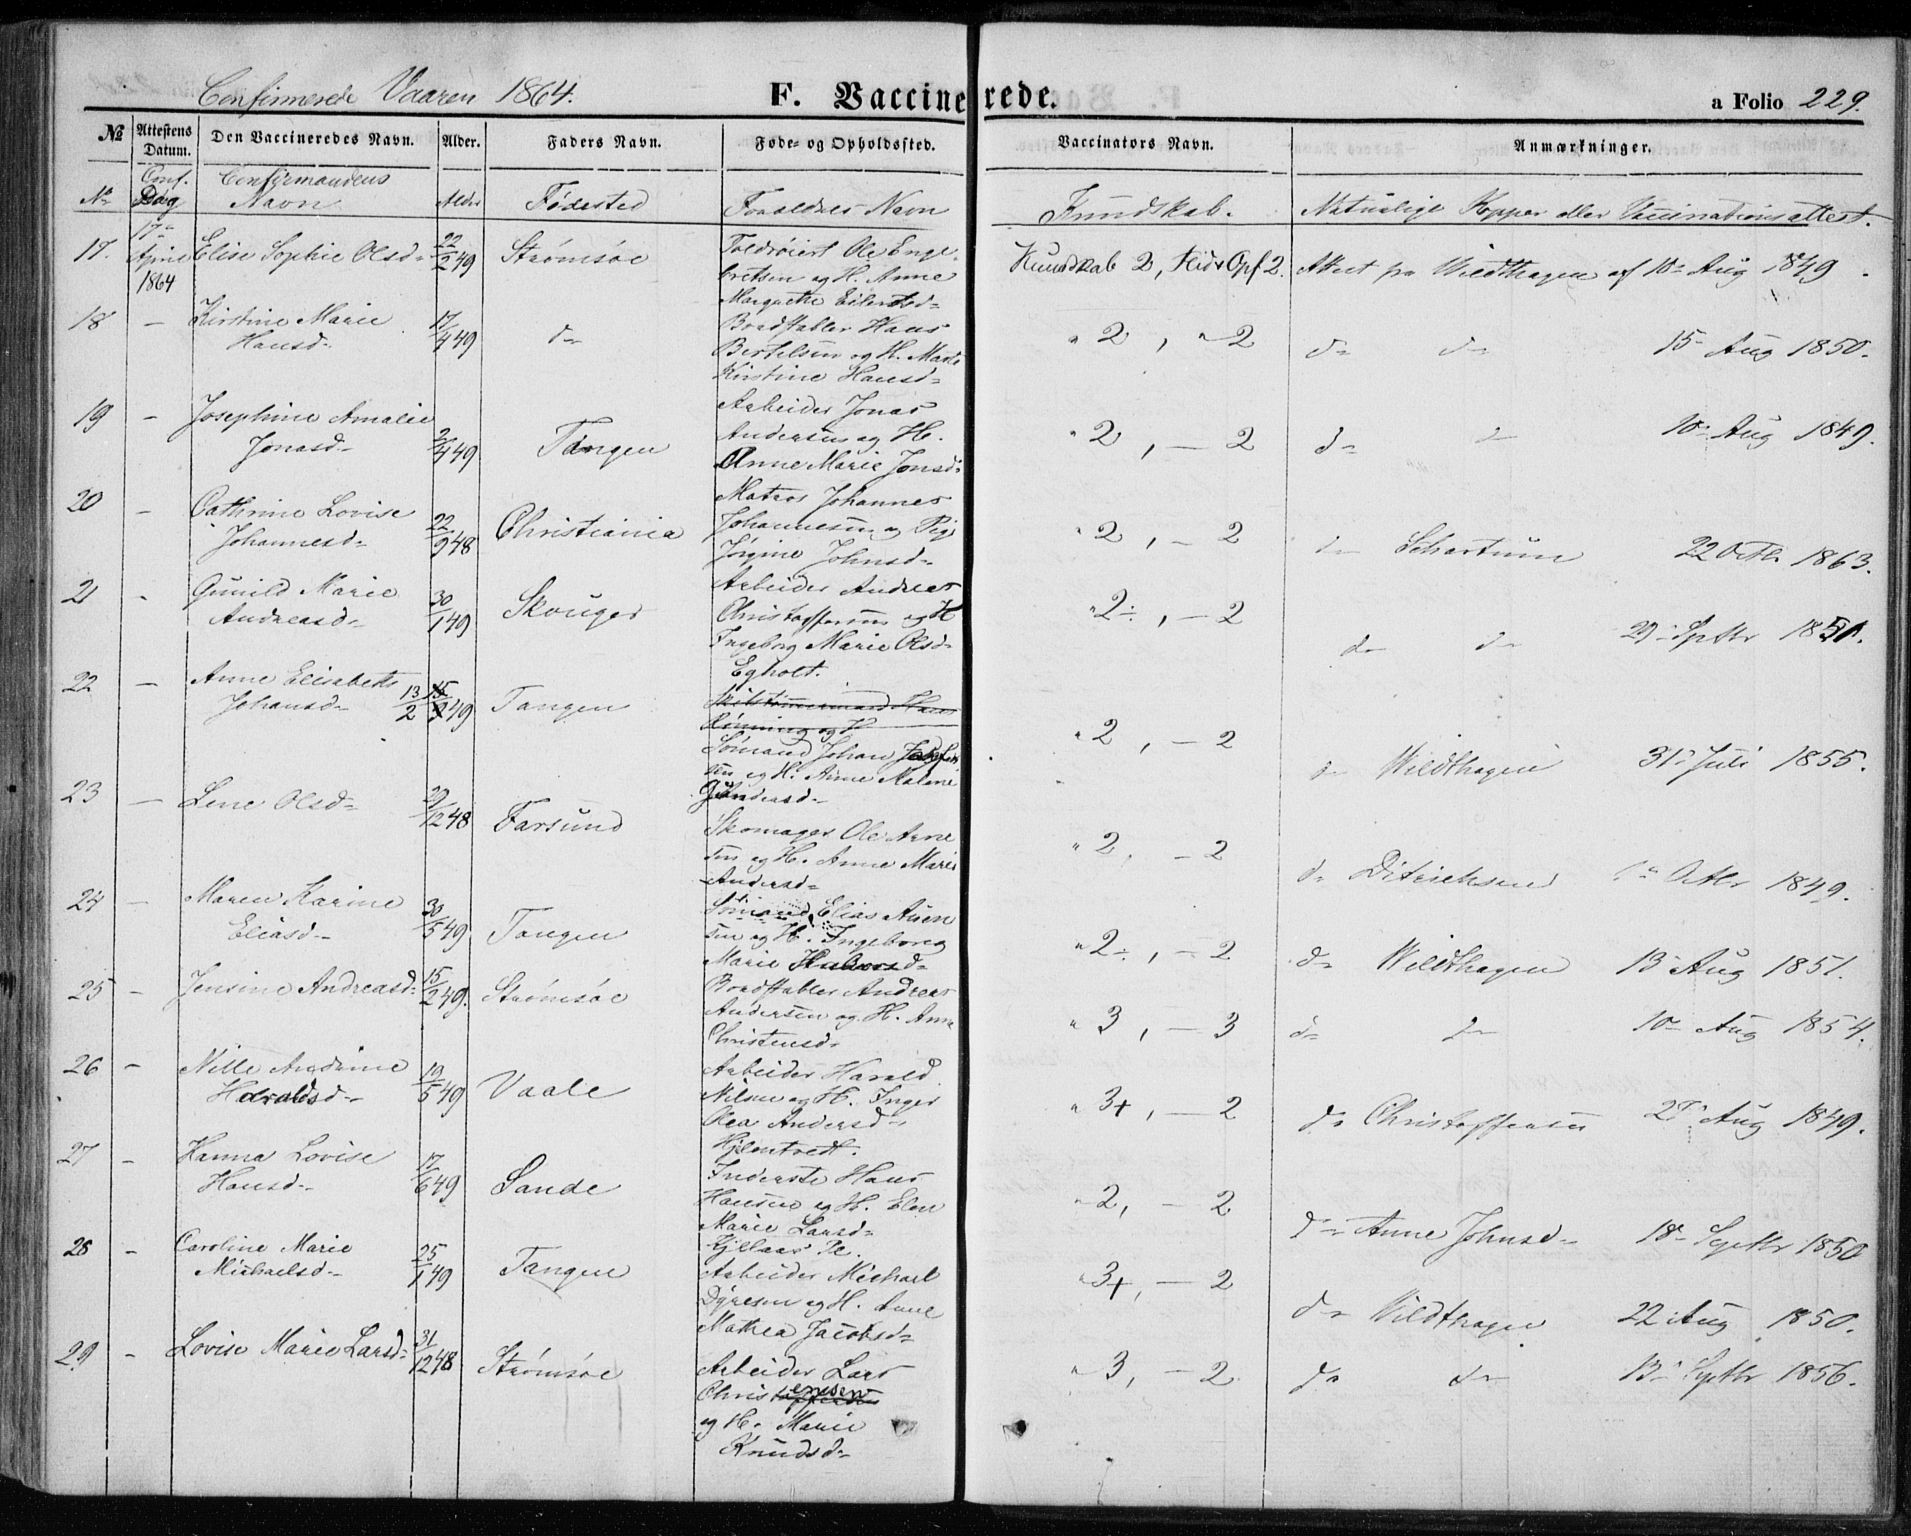 Confirmerede Vaaren 1864.
F. Vaccinerede.
a Folio 229.
№
Attestens Datum.
Den Vaccineredes Navn.
Alder.
Faders Navn.
Føde- og Opholdssted.
Vaccinators Navn.
Anmærkninger.
No
Conf. Dag
Confirmandens Navn
Alder
Fødested
Forældres Navn
Kundskab.
Naturlige Kopper eller Vaccinationsattest.
17. 17de April 1864 Elise Sophie Olsd. 22/2 49 Strømsøe
Ole Enge-
bretsen og H. Anne
Margrethe Eilertsd.
Kundskab 2, Flid & Opf 2. Attest fra Wildthagen af 10 Aug 1849.
18 - Kirstine Marie
Hansd. 17/4 49 do
Bordstabler Hans
Bertelsen og H. Marthe
Kirstine Hansd.
" 2, - 2 do do 15 Aug 1850.
19 - Josephine Amalie
Jonasd. 2/4 49 Tangen
Arbeider Jonas
Andersen og H.
Anne Marie Jonsd.
" 2, - 2 do do 10 Aug 1849.
20 - Cathrine Lovise
Johannesd. 22/9 48 Christiania
Matros Johannes
Johannesen og Pige
Jørgine Johnsd.
" 2, - 2 do Schartum 22 Octbr 1863.
21 - Gunild Marie
Andreasd. 30/1 49 Skouger
Arbeider Andreas
Christoffersen og H
Ingeborg Marie Olsd.
Egholt.
" 2÷, - 2 do do 29 Septbr 1851.
22 - Anne Elisabeth
Johansd. 13/2 49 Tangen
Skibstømmermand Hans
Rønning og H
Sømand Johan
sen og H. Anne Malene
Gundersd.
" 2, - 2 do Wildthagen 31 Juli 1855.
23 - Lene Olsd. 29/12 48 Farsund
Skomager Ole Arne
sen og H. Anne Marie
Andersd.
" 2, - 2 do Ditrichsen 1 Octbr 1849.
24 - Maren Karine
Eliasd. 30/5 49 Tangen
Sømand Elias Auen
sen og H. Ingeborg
Marie Halvorsd.
" 2÷, - 2 do Wildthagen 13 Aug 1851.
25 - Jensine Andreasd. 15/2 49. Strømsøe
Bordstabler Andreas
Andersen og H. Anne
Christensd.
" 3, - 3 do do 10 Aug 1854.
26 - Nille Andrine
Haraldsd. 19/5 49 Vaale
Arbeider Harald
Nilsen og H. Inger
Olea Andersd.
Hjelmtvedt.
" 3+, - 2 do Christoffersen Aug 1849.
27 - Hanna Lovise
Hansd. 17/6 49 Sande
Inderste Hans
Hansen og H. Elen
Marie Larsd.
Kjellaas Ie.
" 2, - 2 do Anne Johnsd. 18 Septbr 1850
28 - Caroline Marie
Michaelsd. 25/1 49 Tangen
Arbeider Michael
Dyresen og H. Anne
Mathea Jacobsd.
" 3+, - 2 do Wildthagen 22 Aug 1850.
29 - Lovise Marie Larsd. 31/12 48 Strømsøe
Arbeider Lars
Christensen
og H. Marie
Knudsd.
" 3, - 2 do do 13 Septbr 1856.